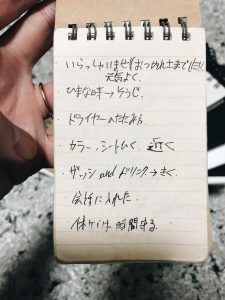 ・いらっしゃいませ!おつかれさまでした!
元気よく。
・ひまな時→そうじ。
・ドライヤーの
・カラー、シートひく。近く
・ザッシ and ドリンク→きく。
・会話に入れた。
・休ケイは時間守る。